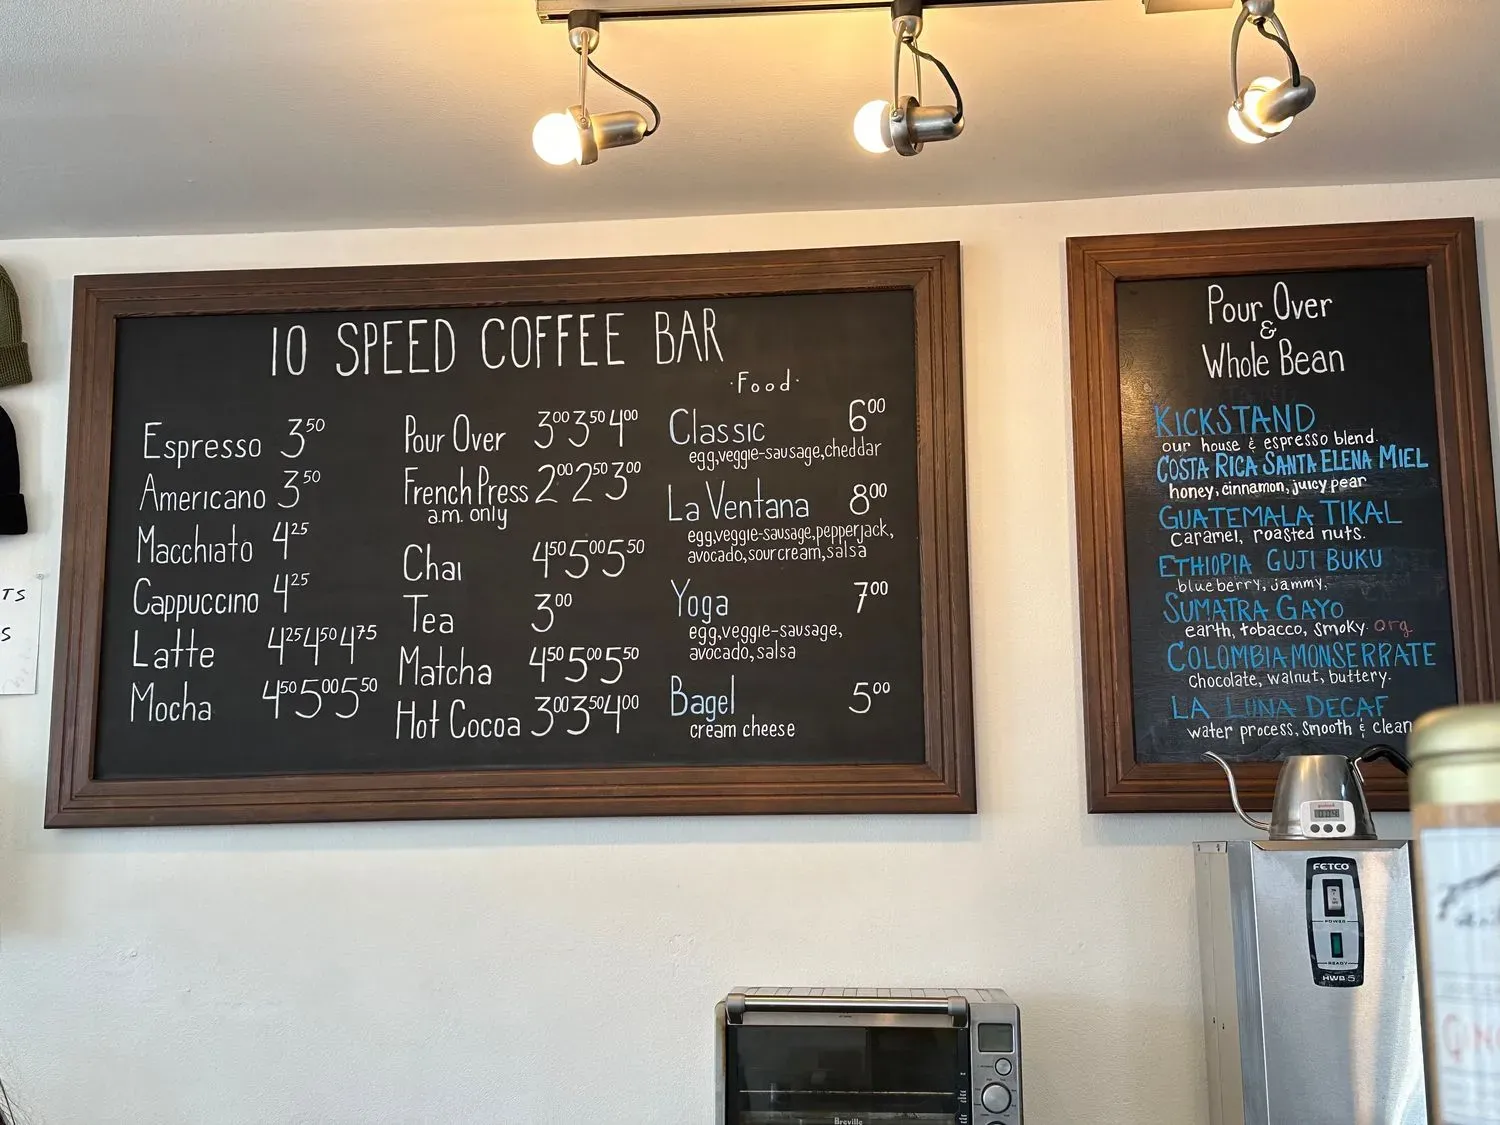 10 SPEED COFFEE BAR
Espresso 3⁵⁰
Americano 3⁵⁰
Macchiato 4²⁵
Cappuccino 4²⁵
Latte 4²⁵ 4⁵⁰ 4⁷⁵
Mocha 4⁵⁰ 5⁰⁰ 5⁵⁰
Pour Over 3⁰⁰ 3⁵⁰ 4⁰⁰
French Press 2⁰⁰ 2⁵⁰ 3⁰⁰
a.m. only
Chai 4⁵⁰ 5⁰⁰ 5⁵⁰
Tea 3⁰⁰
Matcha 4⁵⁰ 5⁰⁰ 5⁵⁰
Hot Cocoa 3⁰⁰ 3⁵⁰ 4⁰⁰
·Food·
Classic 6⁰⁰
egg,veggie-sausage,cheddar
La Ventana 8⁰⁰
egg,veggie-sausage,pepperjack,
avocado,sour cream,salsa
Yoga 7⁰⁰
egg,veggie-sausage,
avocado,salsa
Bagel 5⁰⁰
cream cheese
Pour Over
&
Whole Bean
KICKSTAND
our house & espresso blend.
COSTA RICA SANTA ELENA MIEL
honey, cinnamon, juicy pear
GUATEMALA TIKAL
Caramel, roasted nuts.
ETHIOPIA GUJI BUKU
blueberry, jammy,
SUMATRA GAYO
earth, tobacco, smoky. org.
COLOMBIA MONSERRATE
chocolate, walnut, buttery.
LA LUNA DECAF
water process, smooth & clean
TS
S
FETCO
POWER
READY
HWB-5
Breville